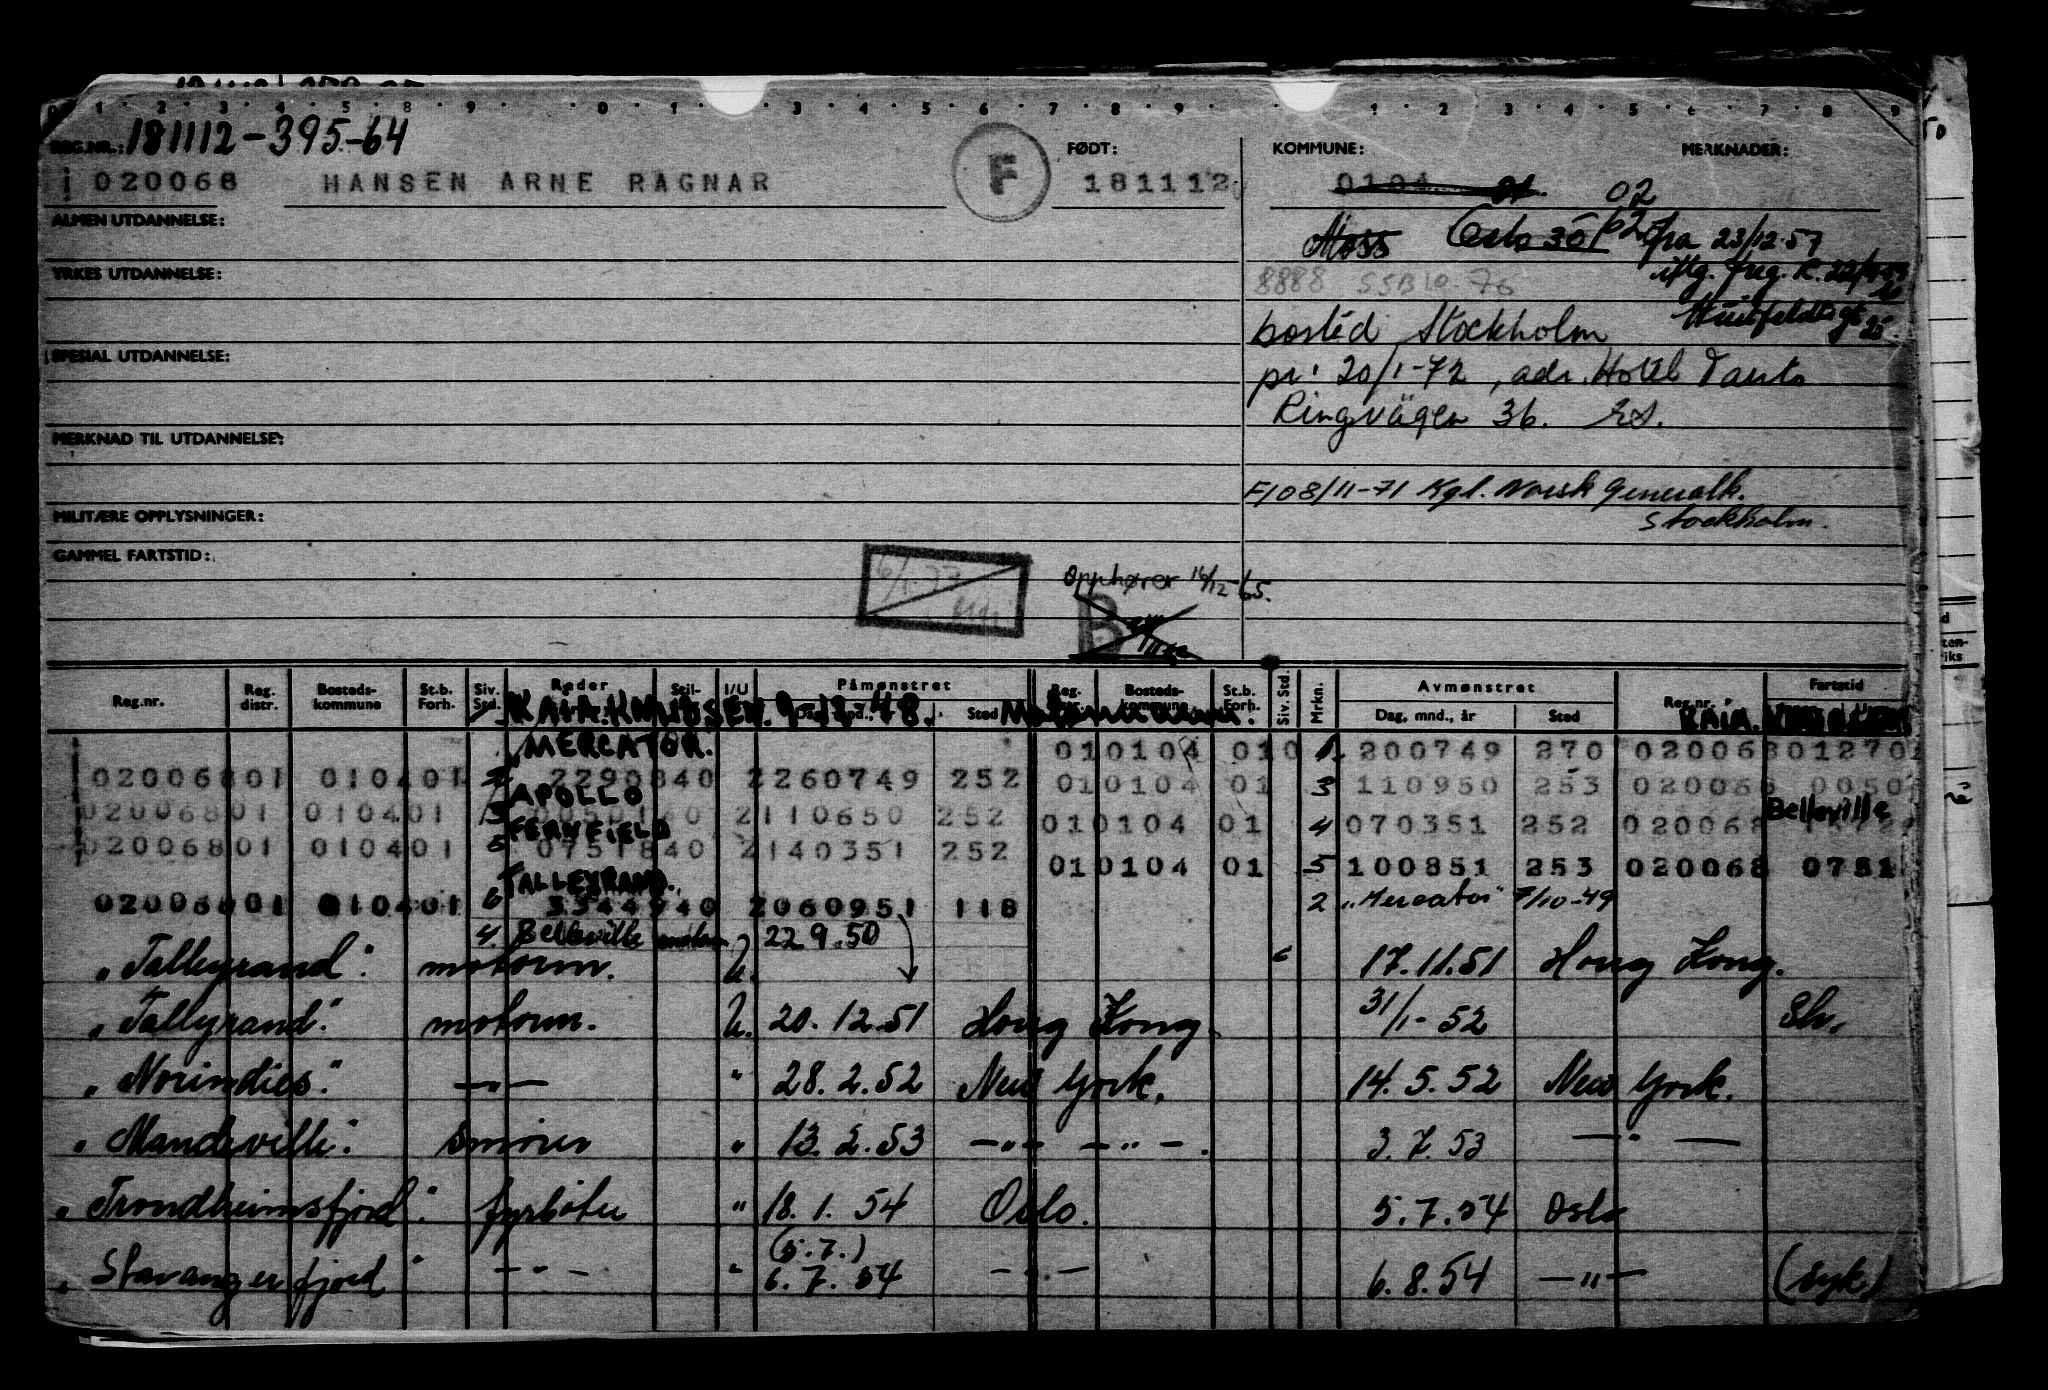 REG.NR.: 181112-395-64
020068 HANSEN ARNE RAGNAR F FØDT: 181112
KOMMUNE: 0104 02 MERKNADER:
ALMEN UTDANNELSE:
Moss Oslo 30/627 fra 23/12-57
YRKES UTDANNELSE:
8888 SSB 10-76
Huitfeldts gt 25.
bosted Stockholm
SPESIAL UTDANNELSE:
pr. 20/1-72, adr. Hotel Tanto
Ringvägen 36.
MERKNAD TIL UTDANNELSE:
F/O 8/11-71 Kgl. Norsk Generalk.
Stockholm.
MILITÆRE OPPLYSNINGER:
GAMMEL FARTSTID:
6/1-77
Opphører 14/12-65.
B
Reg.nr. Reg. distr. Bosteds-kommune St.b. Forh. Siv. Std. Reder Stil- I/U Påmønstret Dag, mnd., Sted Reg. Bosteds-kommune St.b. Forh. Siv. Std. Mrkn. Avmønstret Dag, mnd., år Sted Reg.nr. Fartstid
KAIA KNUDSEN. 9-12-48. Motormann. KAIA.
MERCATOR. 010104 010 1. 200749 270 020068 01270
02006801 010401 2 2290840 2260749 252 010104 01 3 110950 253 020068 0050
APOLLO Belleville
02006801 010401 3 2110650 252 010104 01 4 070351 252 020068
FERNFIELD
02006801 010401 5 0751840 2140351 252 010104 01 5 100851 253 020068 0751
TALLEYRAND.
02006801 010401 6 3344940 2060951 118 2 "Mercator" 7/10-49
4. Belleville motorm. 22.9.50
"Talleyrand". motorm. U. 17.11.51 Hong Kong.
"Tallyrand". motorm. U. 20.12.51 Hong Kong. 31/1-52
"Norindies". —"— " 28.2.52 New York. 14.5.52 New York.
"Mandeville". smører " 13.2.53 —"— —"—. 3.7.53 —"—
"Trondheimsfjord". fyrbøter " 18.1.54 Oslo. 5.7.54 Oslo
(5.7.)
"Stavangerfjord" —"— " 6.7.54 —"— 6.8.54 —"— (syk)